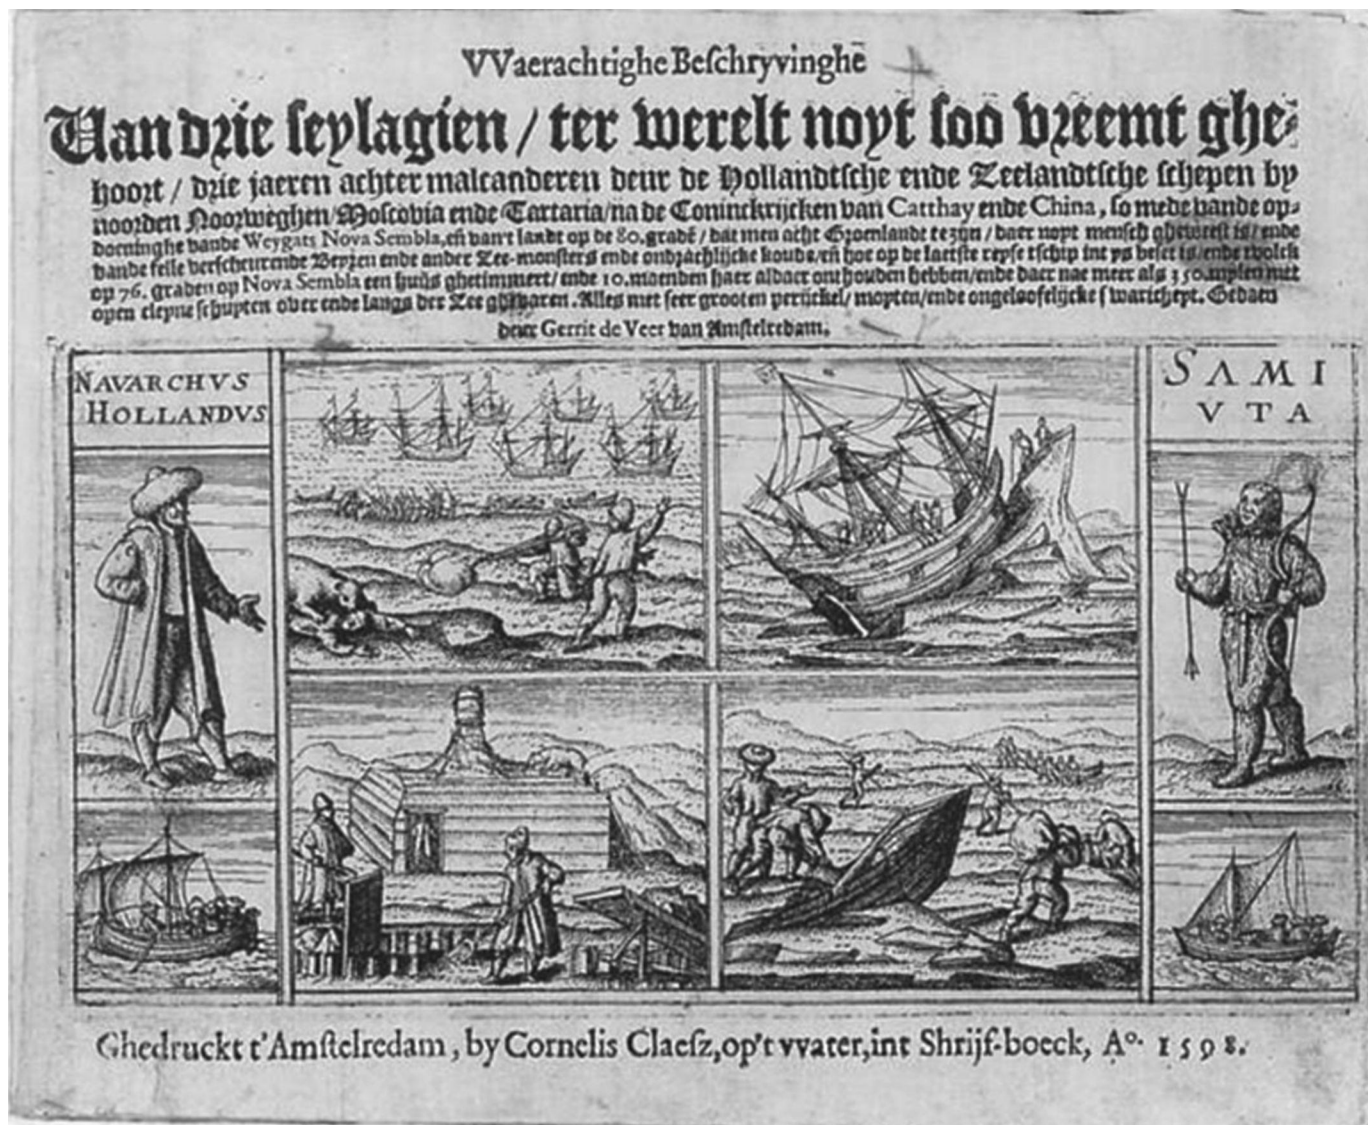 VVaerachtighe Beſchryvinghē
Van drie ſeylagien / ter werelt noyt ſoo vreemt ghe⸗
hoort / drie jaeren achter malcanderen deur de Hollandtſche ende Zeelandtſche ſchepen by
noorden Noorweghen / Moſcovia ende Tartaria / na de Coninckrijcken van Catthay ende China, ſo mede vande op⸗
doeninghe vande Weygats Nova Sembla, eñ van't landt op de 80. gradē / dat men acht Groenlandt te zijn / daer noyt menſch gheweeſt is / ende
vande felle verſcheurende Beyren ende ander Zee-monſters ende ondrachlijcke koude / eñ hoe op de laetſte reyſe tſchip int ys beſet is / ende tvolck
op 76. graden op Nova Sembla een huijs ghetimmert / ende 10. maenden haer aldaer onthouden hebben / ende daer nae meer als 350. mylen met
open cleyne ſchuyten over ende langs der Zee ghevaren. Alles met ſeer grooten perijckel / moyten / ende ongelooſelijcke ſwaricheyt. Gedaen
deur Gerrit de Veer van Amſtelredam.
NAVARCHVS
HOLLANDVS
SAMI
VTA
Ghedruckt t'Amſtelredam, by Cornelis Claeſz, op't vvater, int Shrijf-boeck, A°. 1598.